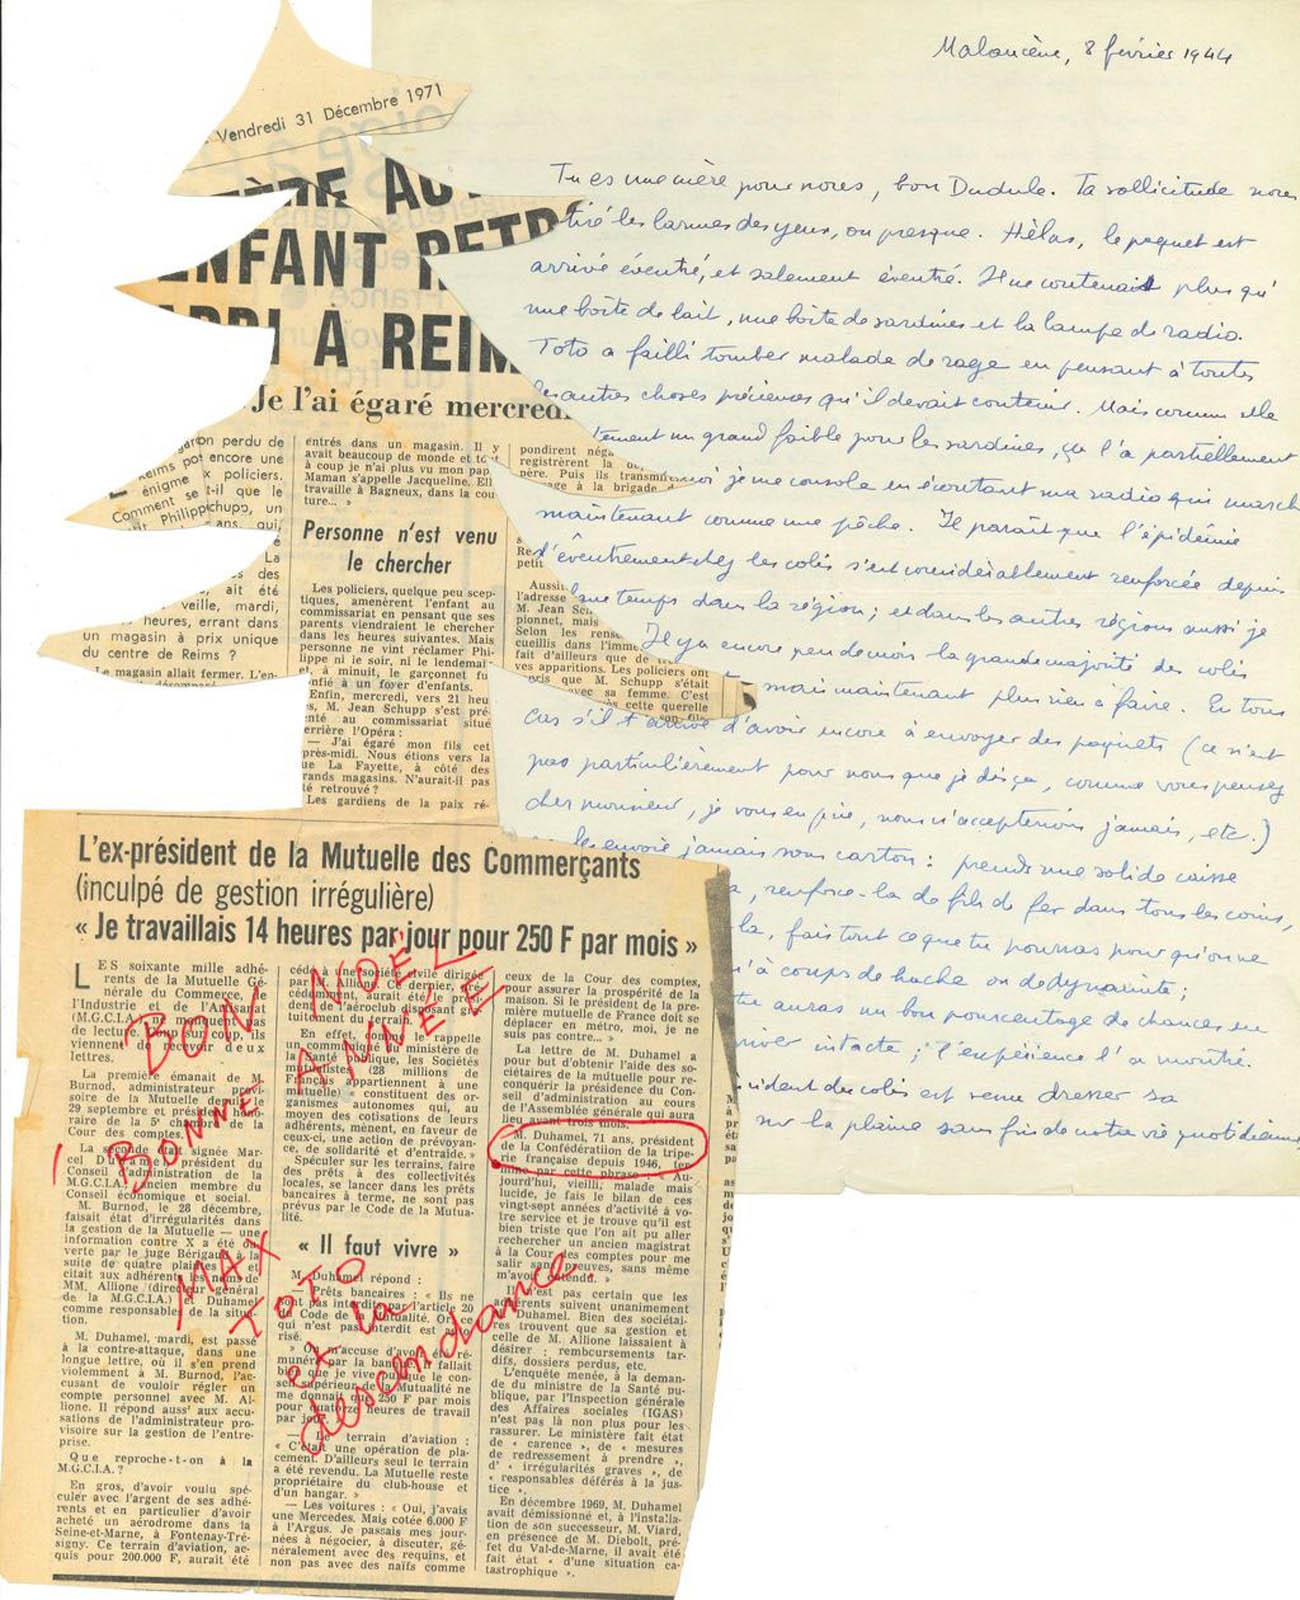 Malaucène, 8 février 1944
Tu es une mère pour nous, bon Dudule. Ta sollicitude nous
tiré les larmes des yeux, ou presque. Hélas, le paquet est
arrivé éventré, et salement éventré. Il ne contenait plus qu'
une boîte de lait, une boîte de sardines et la lampe de radio.
Toto a failli tomber malade de rage en pensant à toutes
les autres choses précieuses qu'il devait contenir. Mais comme elle
tement un grand faible pour les sardines, ça l'a partiellement
moi je me console en écoutant ma radio qui march
maintenant comme une pêche. Il paraît que l'épidémie
d'éventrement chez les colis s'est considérablement renforcée depuis
lque temps dans la région ; et dans les autres régions aussi je
Il y a encore peu de mois la grande majorité des colis
mais maintenant plus rien à faire. En tous
cas s'il t'arrive d'avoir encore à envoyer des paquets (ce n'est
pas particulièrement pour nous que je dis ça, comme vous pensez
cher monsieur, je vous en prie, nous n'accepterions jamais, etc.)
les envoie jamais sous carton : prends une solide caisse
, renforce-la de fils de fer dans tous les coins,
la, fais tout ce que tu pourras pour qu'on ne
qu'à coups de hache ou de dynamite ;
tu auras un bon pourcentage de chances
arriver intacte ; l'expérience l'a montré.
incident du colis est venu dresser sa
sur la plaine sans fin de notre vie quotidienne
Vendredi 31 Décembre 1971
ENFANT RETRO
À REIM
Je l'ai égaré mercredi
garçon perdu de
Reims pose encore une
énigme x policiers.
Comment se t-il que le
it Philippchupp, un
ans, qui,
La
s des
ait été
veille, mardi,
heures, errant dans
un magasin à prix unique
du centre de Reims ?
Le magasin allait fermer. L'en-
entrés dans un magasin. Il y
avait beaucoup de monde et tout
à coup je n'ai plus vu mon pap
Maman s'appelle Jacqueline. Ell
travaille à Bagneux, dans la cou
ture... »
Personne n'est venu
le chercher
Les policiers, quelque peu scep-
tiques, amenèrent l'enfant au
commissariat en pensant que ses
parents viendraient le chercher
dans les heures suivantes. Mais
personne ne vint réclamer Phi-
lippe ni le soir, ni le lendemai
et, à minuit, le garçonnet fu
onfié à un foyer d'enfants.
Enfin, mercredi, vers 21 heu
s, M. Jean Schupp s'est pré-
enté au commissariat situé
errière l'Opéra :
— J'ai égaré mon fils cet
près-midi. Nous étions vers la
ue La Fayette, à côté des
rands magasins. N'aurait-il pas
té retrouvé ?
Les gardiens de la paix ré-
pondirent néga
registrèrent la
père. Puis ils transmi
age à la brigade d
Re
petit
Aussi
l'adresse
M. Jean Sc
pionnet, mais
Selon les rens
cueillis dans l'imme
fait d'ailleurs que de
ves apparitions. Les policiers ont
pris que M. Schupp s'était
avec sa femme. C'est
ès cette querelle
son fils
L'ex-président de la Mutuelle des Commerçants
(inculpé de gestion irrégulière)
« Je travaillais 14 heures par jour pour 250 F par mois »
LES soixante mille adhé-
rents de la Mutuelle Gé-
nérale du Commerce, de
l'Industrie et de l'Artisanat
(M.G.C.I.A.) ne manquent pas
de lecture. Coup sur coup, ils
viennent de recevoir deux
lettres.
La première émanait de M.
Burnod, administrateur provi-
soire de la Mutuelle depuis le
29 septembre et président hono-
raire de la 5e chambre de la
Cour des comptes.
La seconde était signée Mar-
cel Duhamel, président du
Conseil d'administration de la
M.G.C.I.A., ancien membre du
Conseil économique et social.
M. Burnod, le 28 décembre,
faisait état d'irrégularités dans
la gestion de la Mutuelle — une
information contre X a été ou-
verte par le juge Bérigaud à la
suite de quatre plaintes — et
citait aux adhérents les noms de
MM. Allione (directeur général
de la M.G.C.I.A.) et Duhamel
comme responsables de la situa-
tion.
M. Duhamel, mardi, est passé
à la contre-attaque, dans une
longue lettre, où il s'en prend
violemment à M. Burnod, l'ac-
cusant de vouloir régler un
compte personnel avec M. Al-
lione. Il répond aussi aux accu-
sations de l'administrateur pro-
visoire sur la gestion de l'entre-
prise.
Que reproche-t-on à la
M.G.C.I.A. ?
En gros, d'avoir voulu spé-
culer avec l'argent de ses adhé-
rents et en particulier d'avoir
acheté un aérodrome dans la
Seine-et-Marne, à Fontenay-Tré-
signy. Ce terrain d'aviation, ac-
quis pour 200.000 F, aurait été
cédé à une société civile dirigée
par M. Allione. Ce dernier, pré-
cédemment, aurait été le prési-
dent de l'aéroclub disposant gra-
tuitement du terrain.
En effet, comme le rappelle
un communiqué du ministère de
la Santé publique, les Sociétés
mutualistes (28 millions de
Français appartiennent à une
mutuelle) « constituent des or-
ganismes autonomes qui, au
moyen des cotisations de leurs
adhérents, mènent, en faveur de
ceux-ci, une action de prévoyan-
ce, de solidarité et d'entraide. »
Spéculer sur les terrains, faire
des prêts à des collectivités
locales, se lancer dans les prêts
bancaires à terme, ne sont pas
prévus par le Code de la Mutua-
lité.
« Il faut vivre »
M. Duhamel répond :
— Prêts bancaires : « Ils ne
sont pas interdits par l'article 20
du Code de la Mutualité. Or ce
qui n'est pas interdit est auto-
risé.
» On m'accuse d'avoir été ré-
munéré par la banque. Il fallait
bien que je vive puisque le con-
seil supérieur de la Mutualité ne
me donnait que 250 F par mois
pour quatorze heures de travail
par jour.
— Le terrain d'aviation :
« C'était une opération de pla-
cement. D'ailleurs seul le terrain
a été revendu. La Mutuelle reste
propriétaire du club-house et
d'un hangar. »
— Les voitures : « Oui, j'avais
une Mercedes. Mais cotée 6.000 F
à l'Argus. Je passais mes jour-
nées à négocier, à discuter, gé-
néralement avec des requins, et
non pas avec des naïfs comme
ceux de la Cour des comptes,
pour assurer la prospérité de la
maison. Si le président de la pre-
mière mutuelle de France doit se
déplacer en métro, moi, je ne
suis pas contre... »
La lettre de M. Duhamel a
pour but d'obtenir l'aide des so-
ciétaires de la mutuelle pour re-
conquérir la présidence du Con-
seil d'administration au cours
de l'Assemblée générale qui aura
lieu avant trois mois.
M. Duhamel, 71 ans, président
de la Confédération de la tripe-
rie française depuis 1946, ter-
mine par cette phrase : « Au-
jourd'hui, vieilli, malade mais
lucide, je fais le bilan de ces
vingt-sept années d'activité à vo-
tre service et je trouve qu'il est
bien triste que l'on ait pu aller
rechercher un ancien magistrat
à la Cour des comptes pour me
salir sans preuves, sans même
m'avoir entendu. »
Il n'est pas certain que les
adhérents suivent unanimement
M. Duhamel. Bien des sociétai-
res trouvent que sa gestion et
celle de M. Allione laissaient à
désirer : remboursements tar-
difs, dossiers perdus, etc.
L'enquête menée, à la deman-
de du ministre de la Santé pu-
blique, par l'Inspection générale
des Affaires sociales (IGAS)
n'est pas là non plus pour les
rassurer. Le ministère fait état
de « carence », de « mesures
de redressement à prendre »,
d' « irrégularités graves », de
« responsables déférés à la jus-
tice ».
En décembre 1969, M. Duhamel
avait démissionné et, à l'installa-
tion de son successeur, M. Viard,
en présence de M. Diebolt, pré-
fet du Val-de-Marne, il avait été
fait état « d'une situation ca-
tastrophique ».
BON NOËL
! BONNE ANNÉE
MAX
TOTO
et la
descendance.